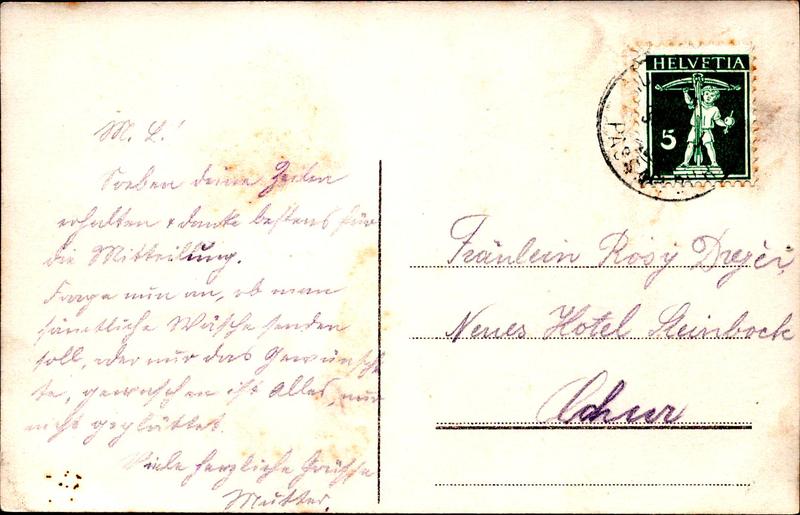 M. L.!
Soeben deine Zeilen
erhalten & danke bestens für
die Mitteilung.
Frage nun an, ob man
sämtliche Wäsche senden
soll, oder nur das Gewünsch
te, gewaschen ist Alles, nur
nicht geglättet.
Viele herzliche Grüsse
Mutter.
HELVETIA
5
Fräulein Rosy
Neues Hotel Steinbock
Chur